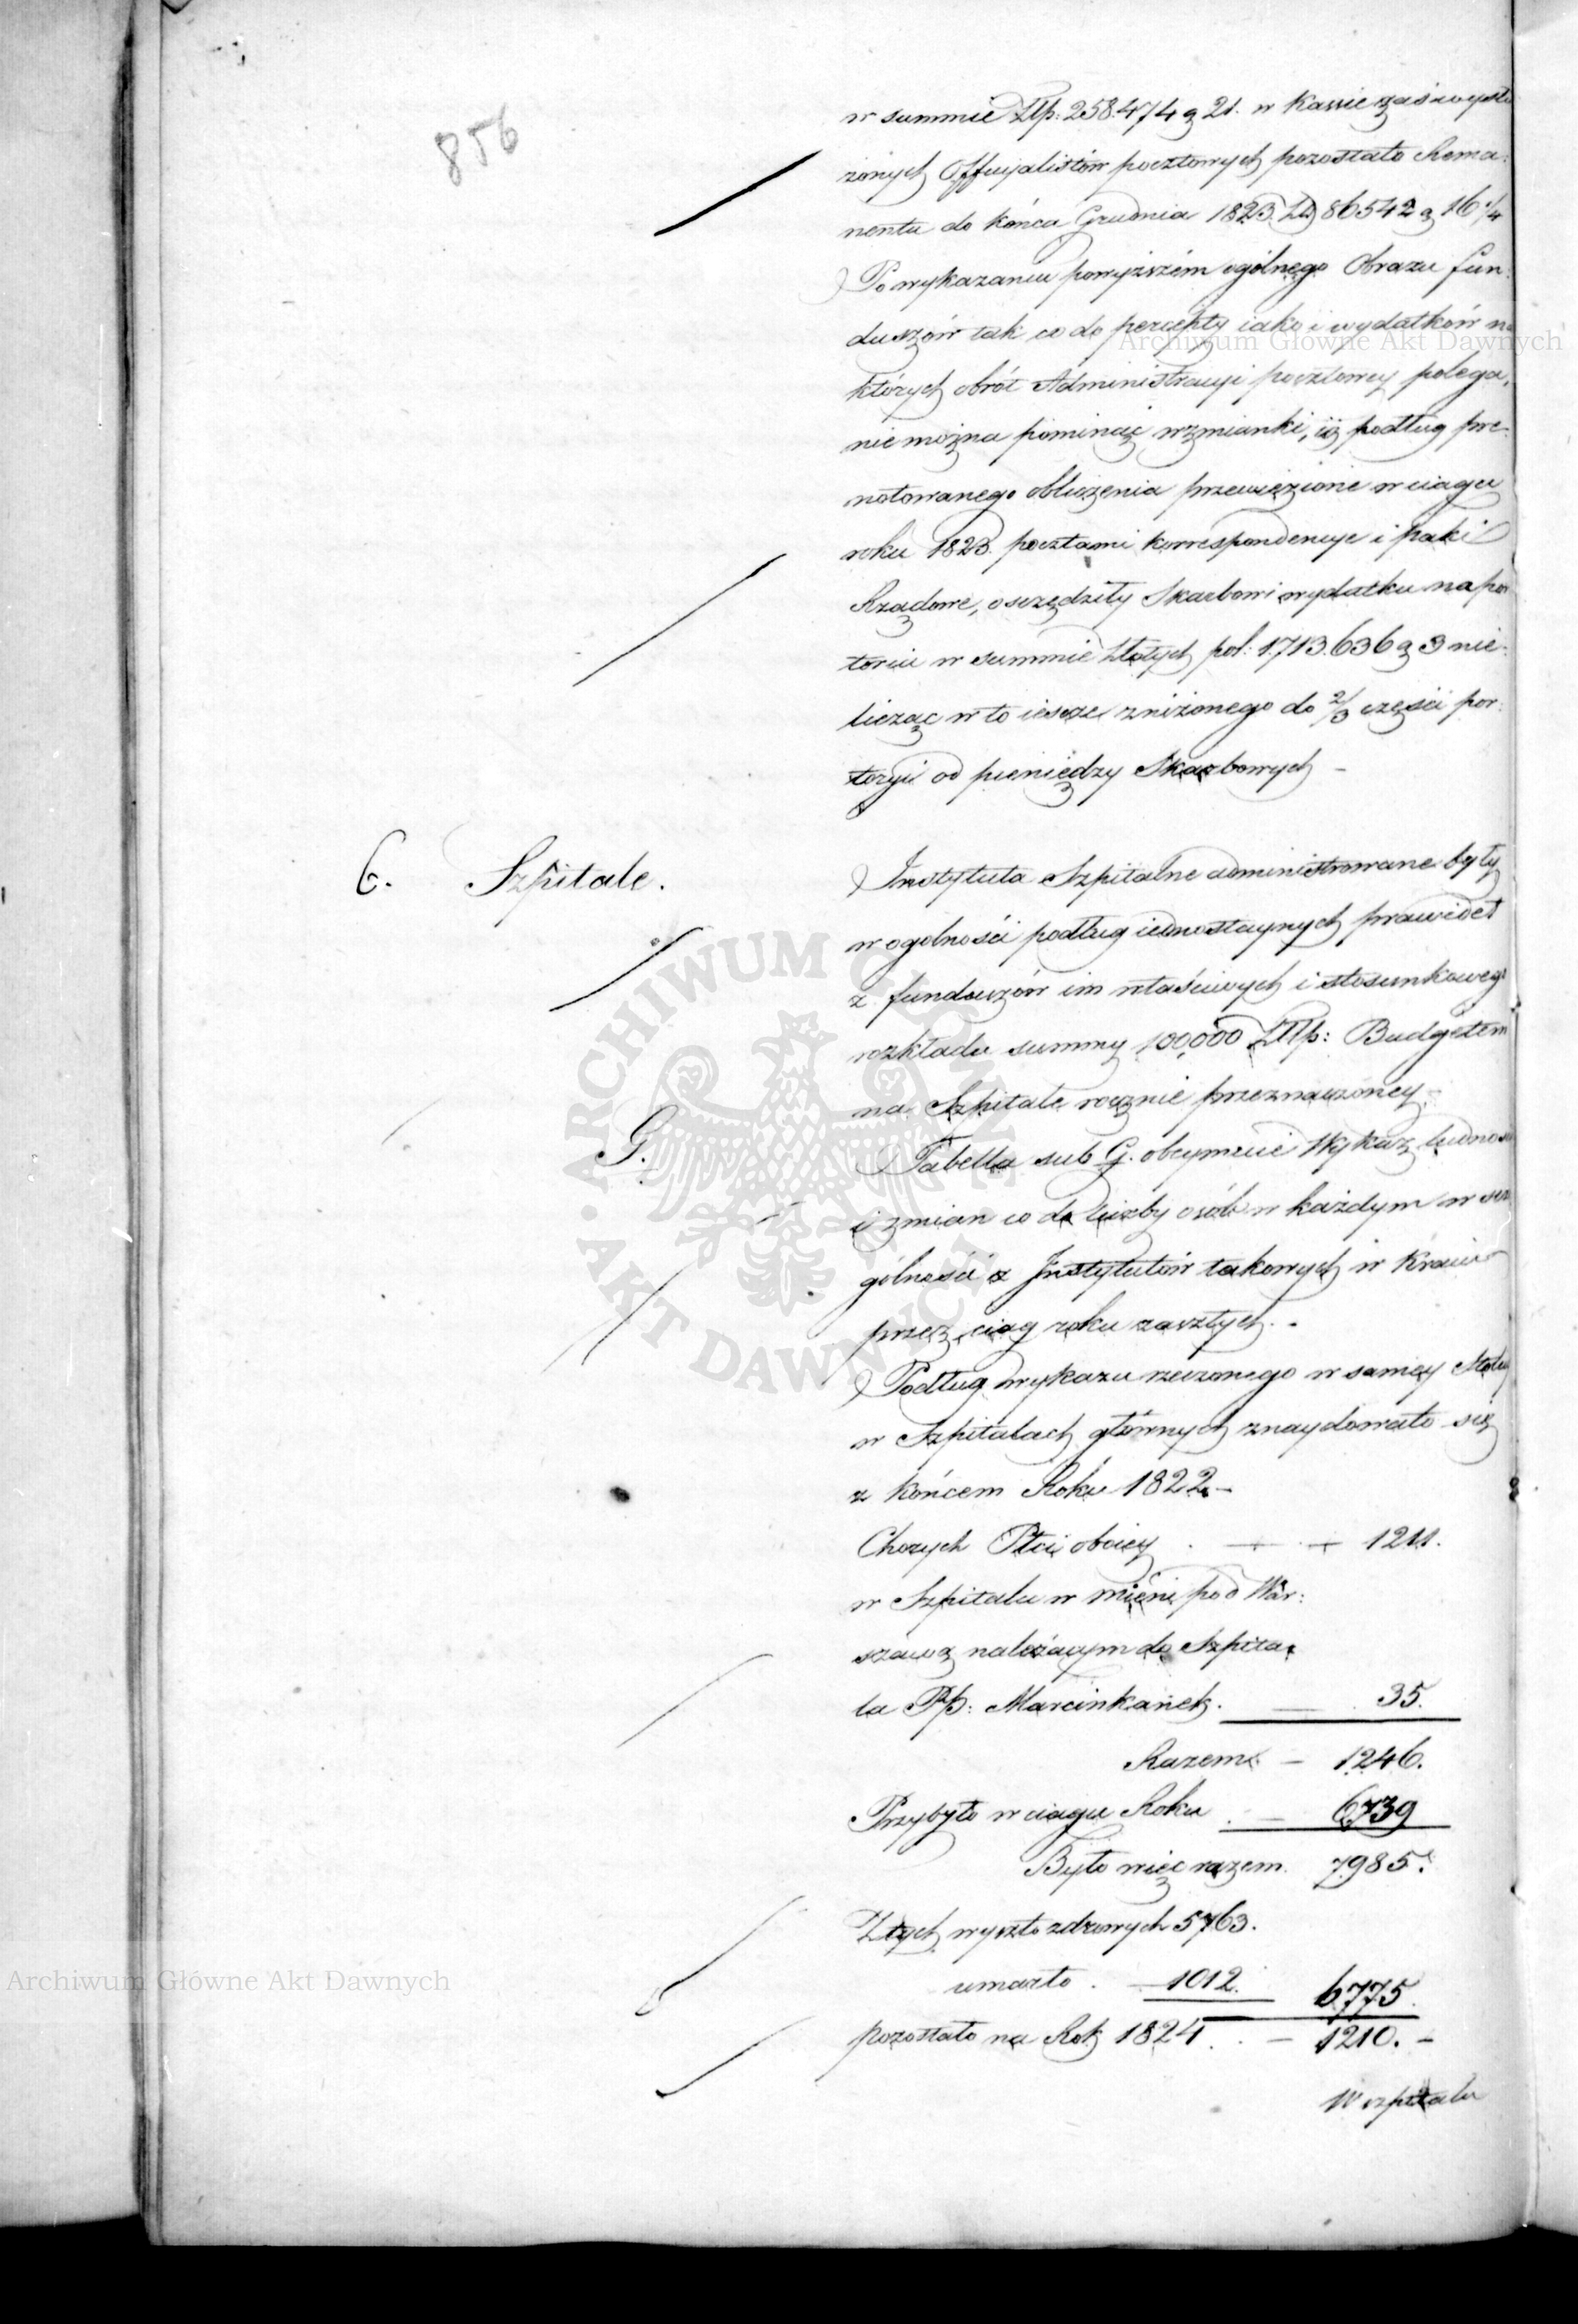 856
w summie Złp: 258.474 g 21. w Kassie zaś wysłu
żonych Officyalistów pocztowych pozostało Rema:
nentu do końca Grudnia 1823. Zł 86542 g 16 1/4
Po wykazaniu powyższém ogólnego Obrazu fun:
duszów tak co do percepty iako i wydatków na
których obrót Administracyi pocztowey polega,
nie można pominąć wzmianki, iż podług pre:
notowanego obliczenia przewiezione w ciągu
roku 1823. pocztami korrespondencye i paki
Rządowe, oszczędziły Skarbowi wydatku na por
toria w summie Złotych pol: 1.713.636 g 3 nie:
licząc w to iescze zniżonego do 2/3 części por:
toryi od pieniędzy Skarbowych –
6. Szpitale.
Instytuta Szpitalne administrowane były
w ogolności podług iednostaynych prawideł
z funduszów im właściwych i stosunkowego
rozkładu summy 100,000 Złp: Budgetem
na Szpitale rocznie przeznaczoney.
G.
Tabella sub G. obeymuie Wykaz ludności
i zmian co do liczby osób w każdym w szcz
gólności z Instytutów takowych w Kraiu
przez ciąg roku zaszłych. –
Podług wykazu rzeczonego w samey Stoli
w Szpitalach głównych znaydowało się
z końcem Roku 1822 –
Chorych Płci oboiey . — — 1211.
w Szpitalu w Mieni pod War:
szawą należącym do Szpita
la Pp: Marcinkanek. — 35.
Razem – 1246.
Przybyło w ciągu Roku . — 6739
Było więc razem. 7985.
Z tych wyszło zdrowych 5763.
umarło . — 1012. 6775.
pozostało na Rok 1824 . . – 1210. –
W szpitalu
Archiwum Główne Akt Dawnych
Archiwum Główne Akt Dawnych
ARCHIWUM GŁÓWNE · AKT DAWNYCH ·